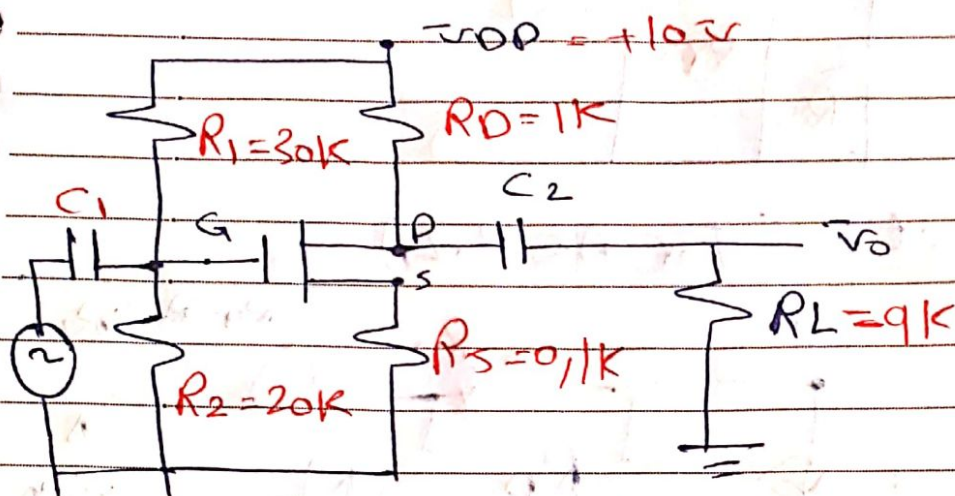 VDD = +10V
R1=30K
RD=1K
C1
G
D
C2
Vo
S
RL=9K
RS=0,1K
~
R2=20K